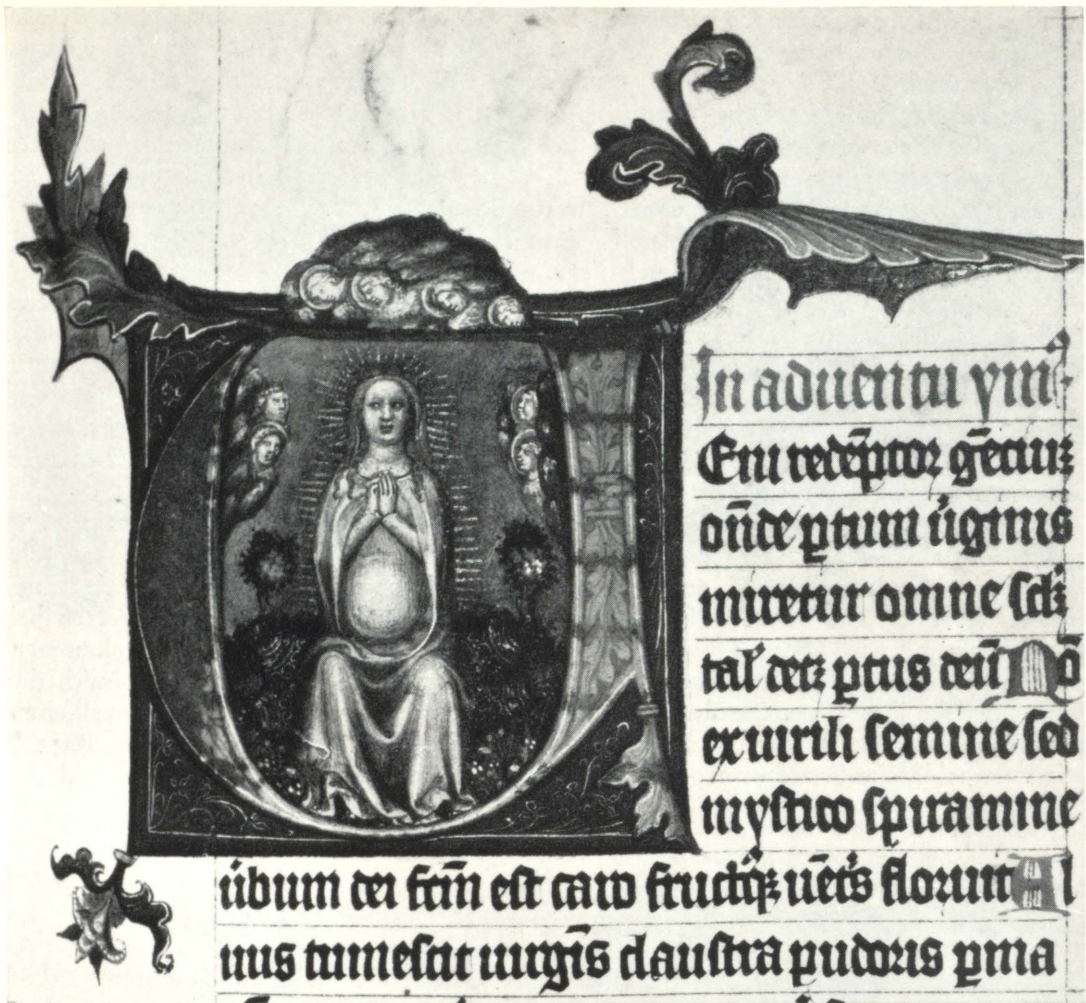 In aduentu ym̅
Eni redēptor gēciuꝫ
on̄de ꝑtum ůginis
miretur omne sclꝫ
tal' decꝫ ꝑtus deū Nō
ex uirili semine sed
mystico spiramine
ůbum dei fcm̄ est caro fructꝗꝫ uētͥs floruit Al
uus tumescit uirgīs claustra pudoris ꝑma